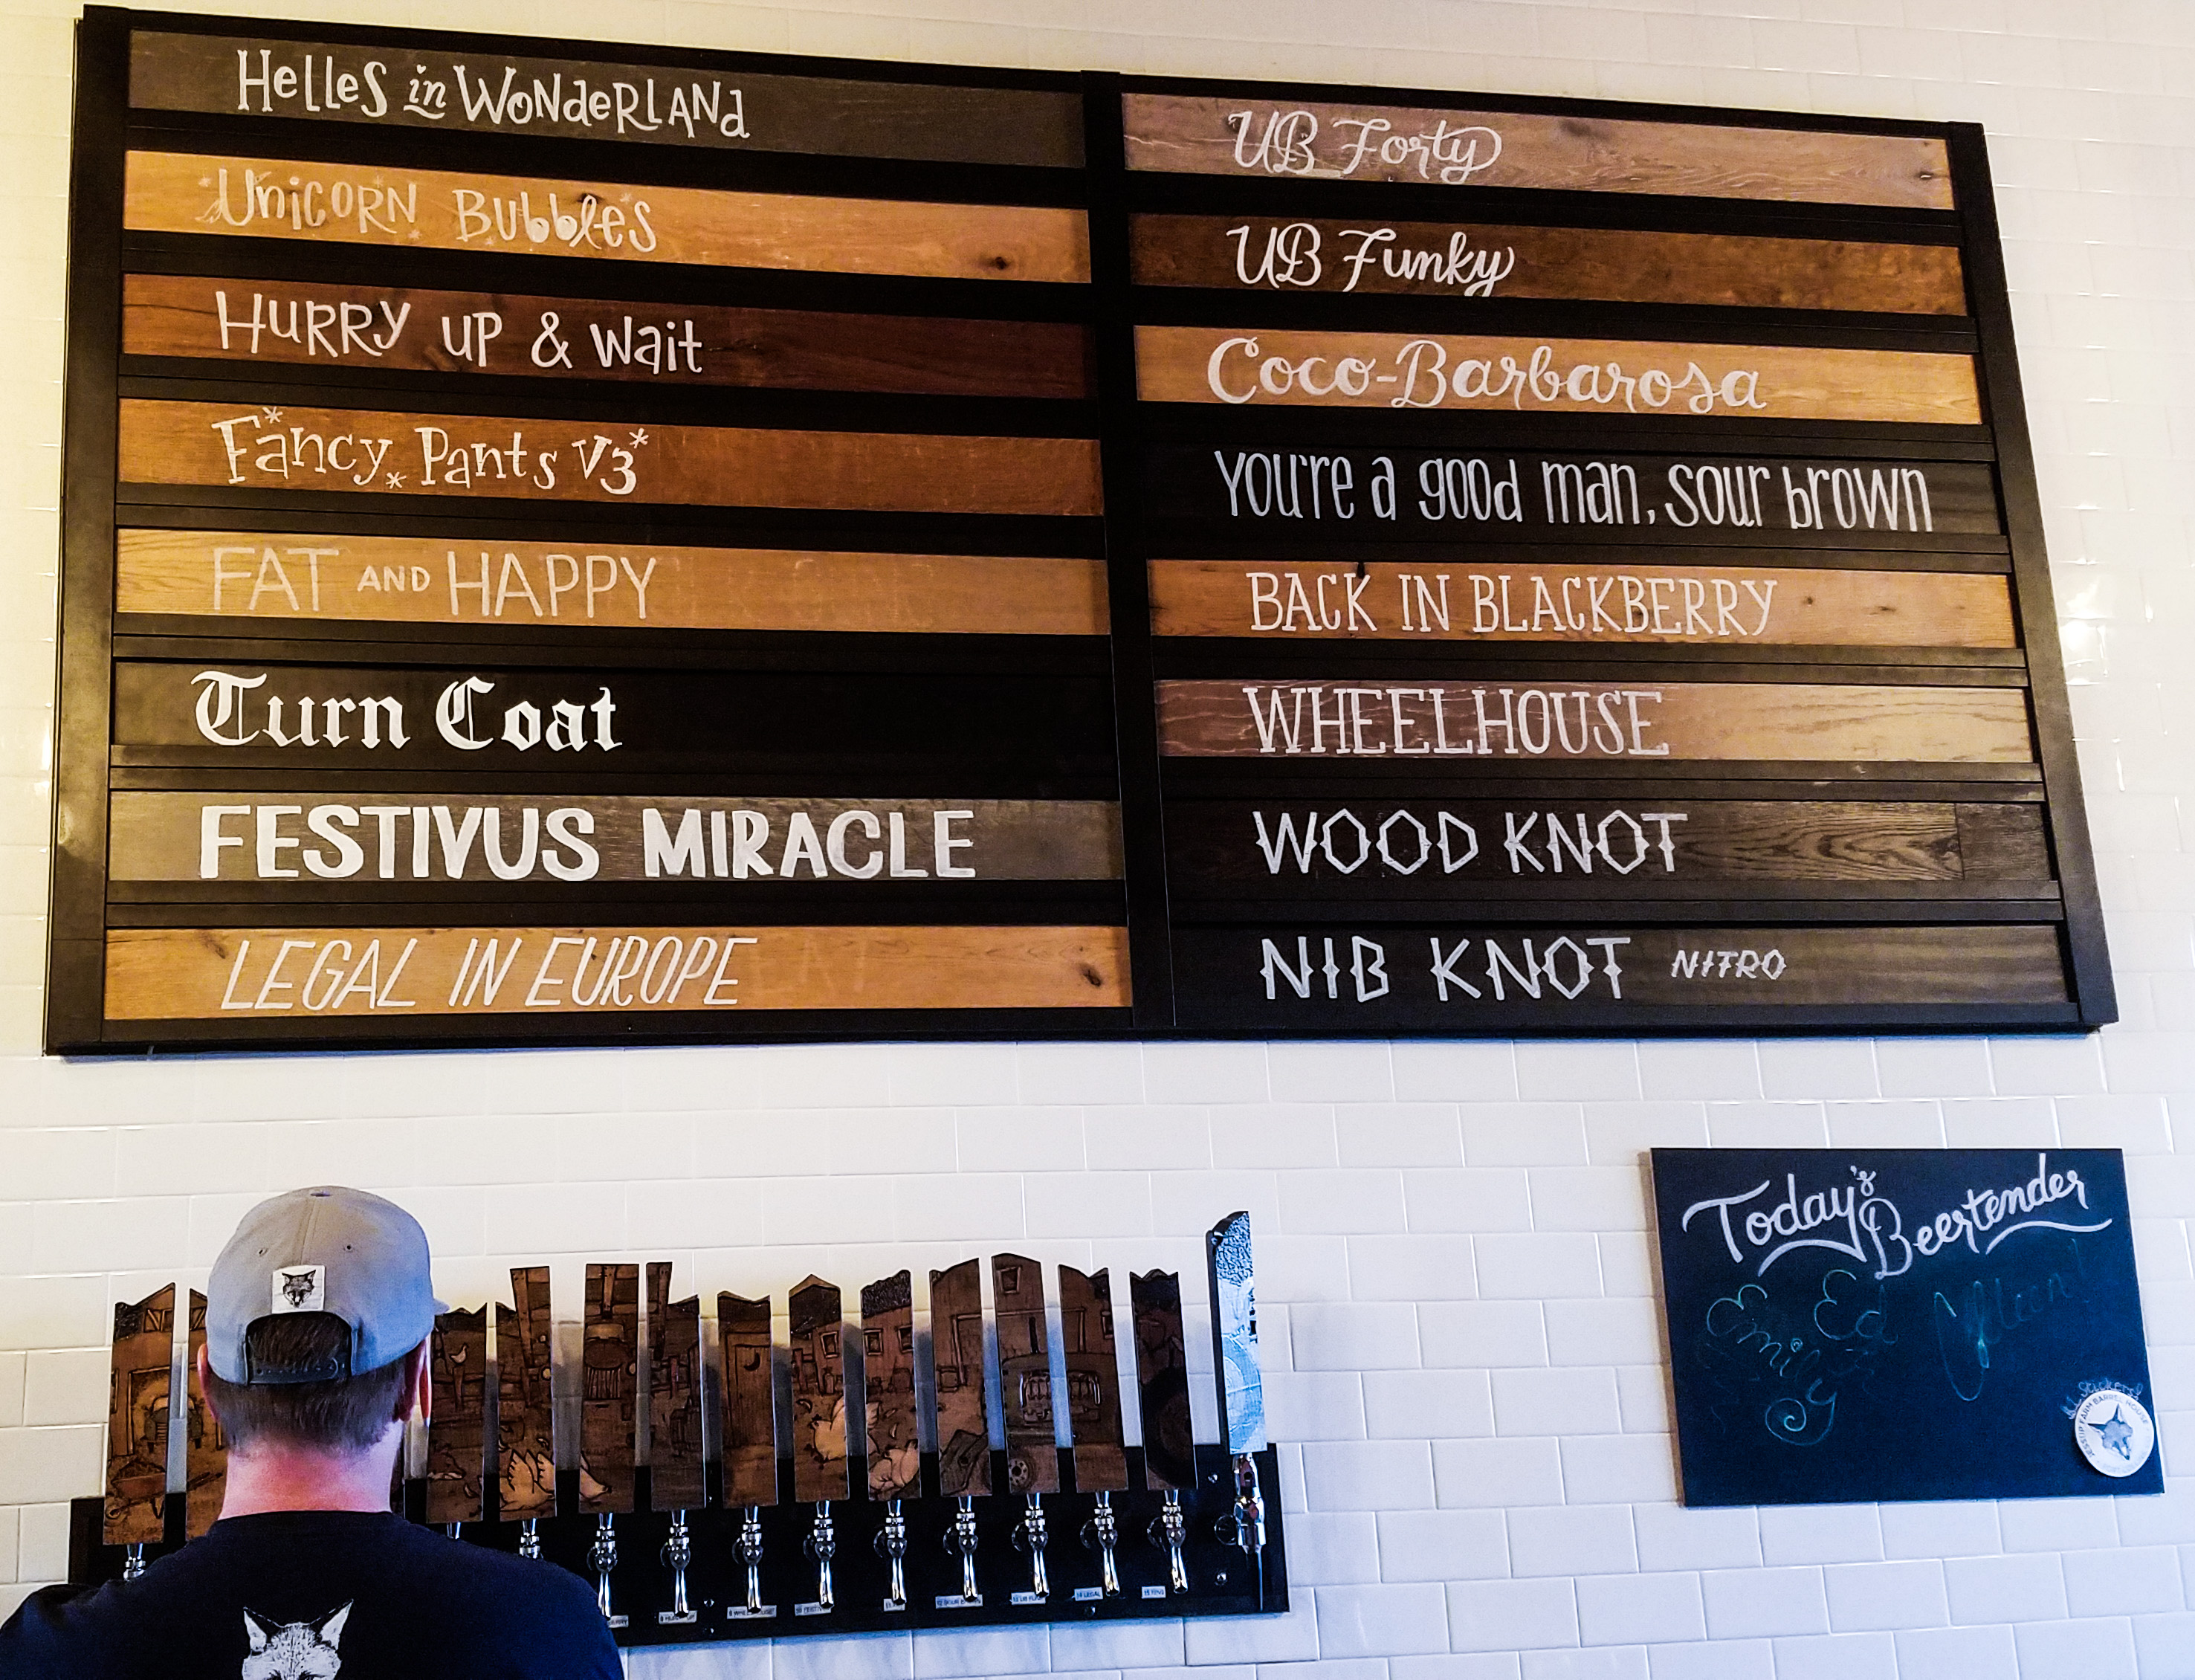 Helles in Wonderland
Unicorn Bubbles
Hurry up & wait
Fancy Pants V3
FAT AND HAPPY
Turn Coat
FESTIVUS MIRACLE
LEGAL IN EUROPE
UB Forty
UB Funky
Coco-Barbarosa
You're a good man, sour brown
BACK IN BLACKBERRY
WHEELHOUSE
WOOD KNOT
NIB KNOT NITRO
Today's Beertender
Emily
Ed
stickers!
JESSUP FARM BARREL HOUSE